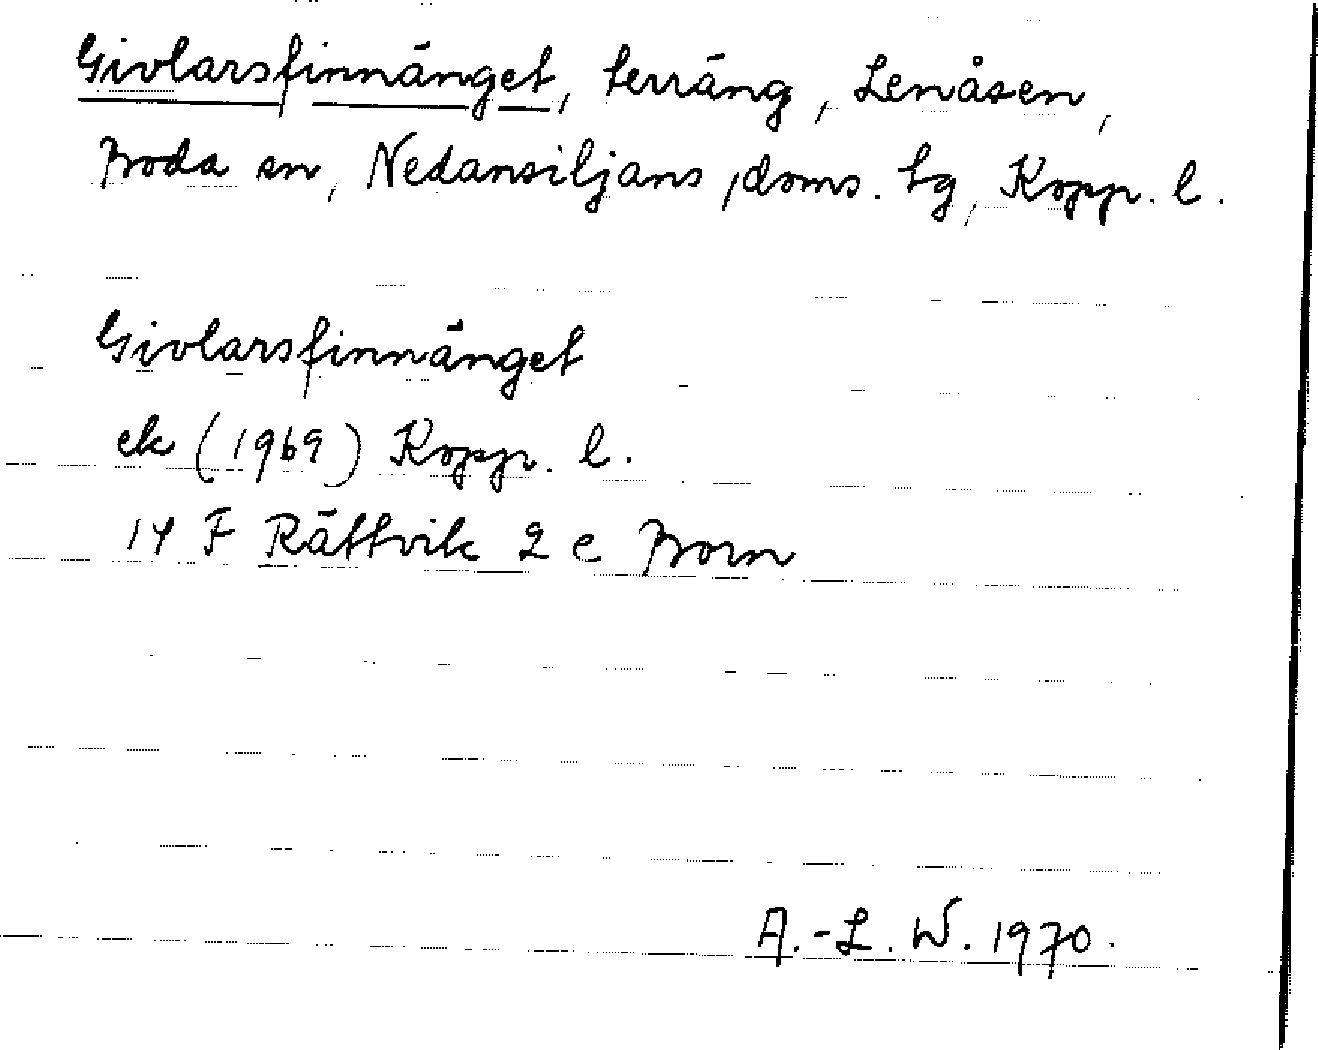 Givlarsfinnänget, terräng, Lenåsen,
Boda sn, Nedansiljans, doms. tg, Kopp. l.
Givlarsfinnänget
ek (1969) Kopp. l.
14 F Rättvik 2 e Born
A.-L. W. 1970.